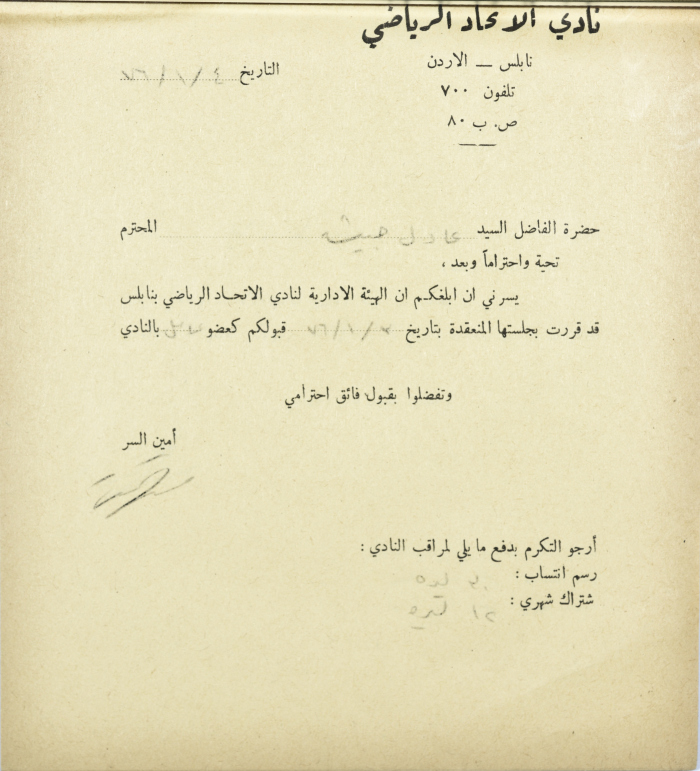 نادي الاتحاد الرياضي
نابلس — الاردن
تلفون ٧٠٠
ص. ب ٨٠
التاريخ ٤ / ١ / ٧٦
حضرة الفاضل السيد عادل حبيشه المحترم
تحية واحتراماً وبعد ،
يسرني ان ابلغكم ان الهيئة الادارية لنادي الاتحاد الرياضي بنابلس
قد قررت بجلستها المنعقدة بتاريخ ٣ / ١ / ٧٦ قبولكم كعضو بالنادي
وتفضلوا بقبول فائق احترامي
أمين السر
أرجو التكرم بدفع ما يلي لمراقب النادي :
رسم انتساب : ليره
شتراك شهري : ١٢ ليره